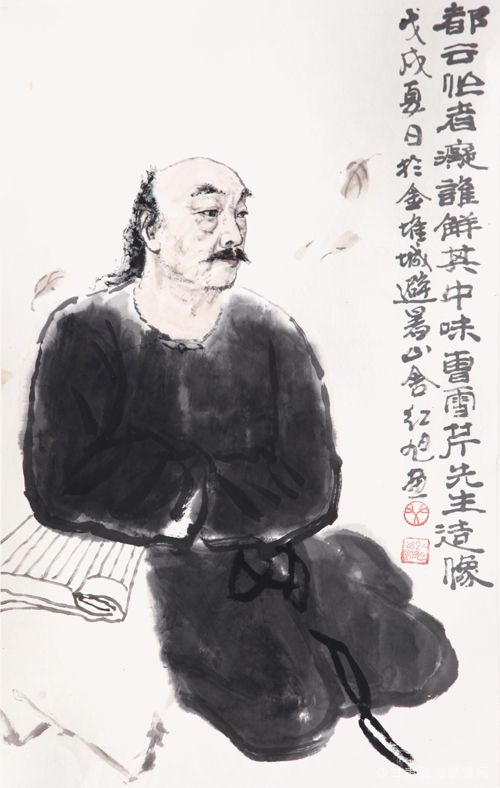 都云作者癡誰解其中味曹雪芹先生造像
戊戌夏日於金堆城避暑山舍红旭画